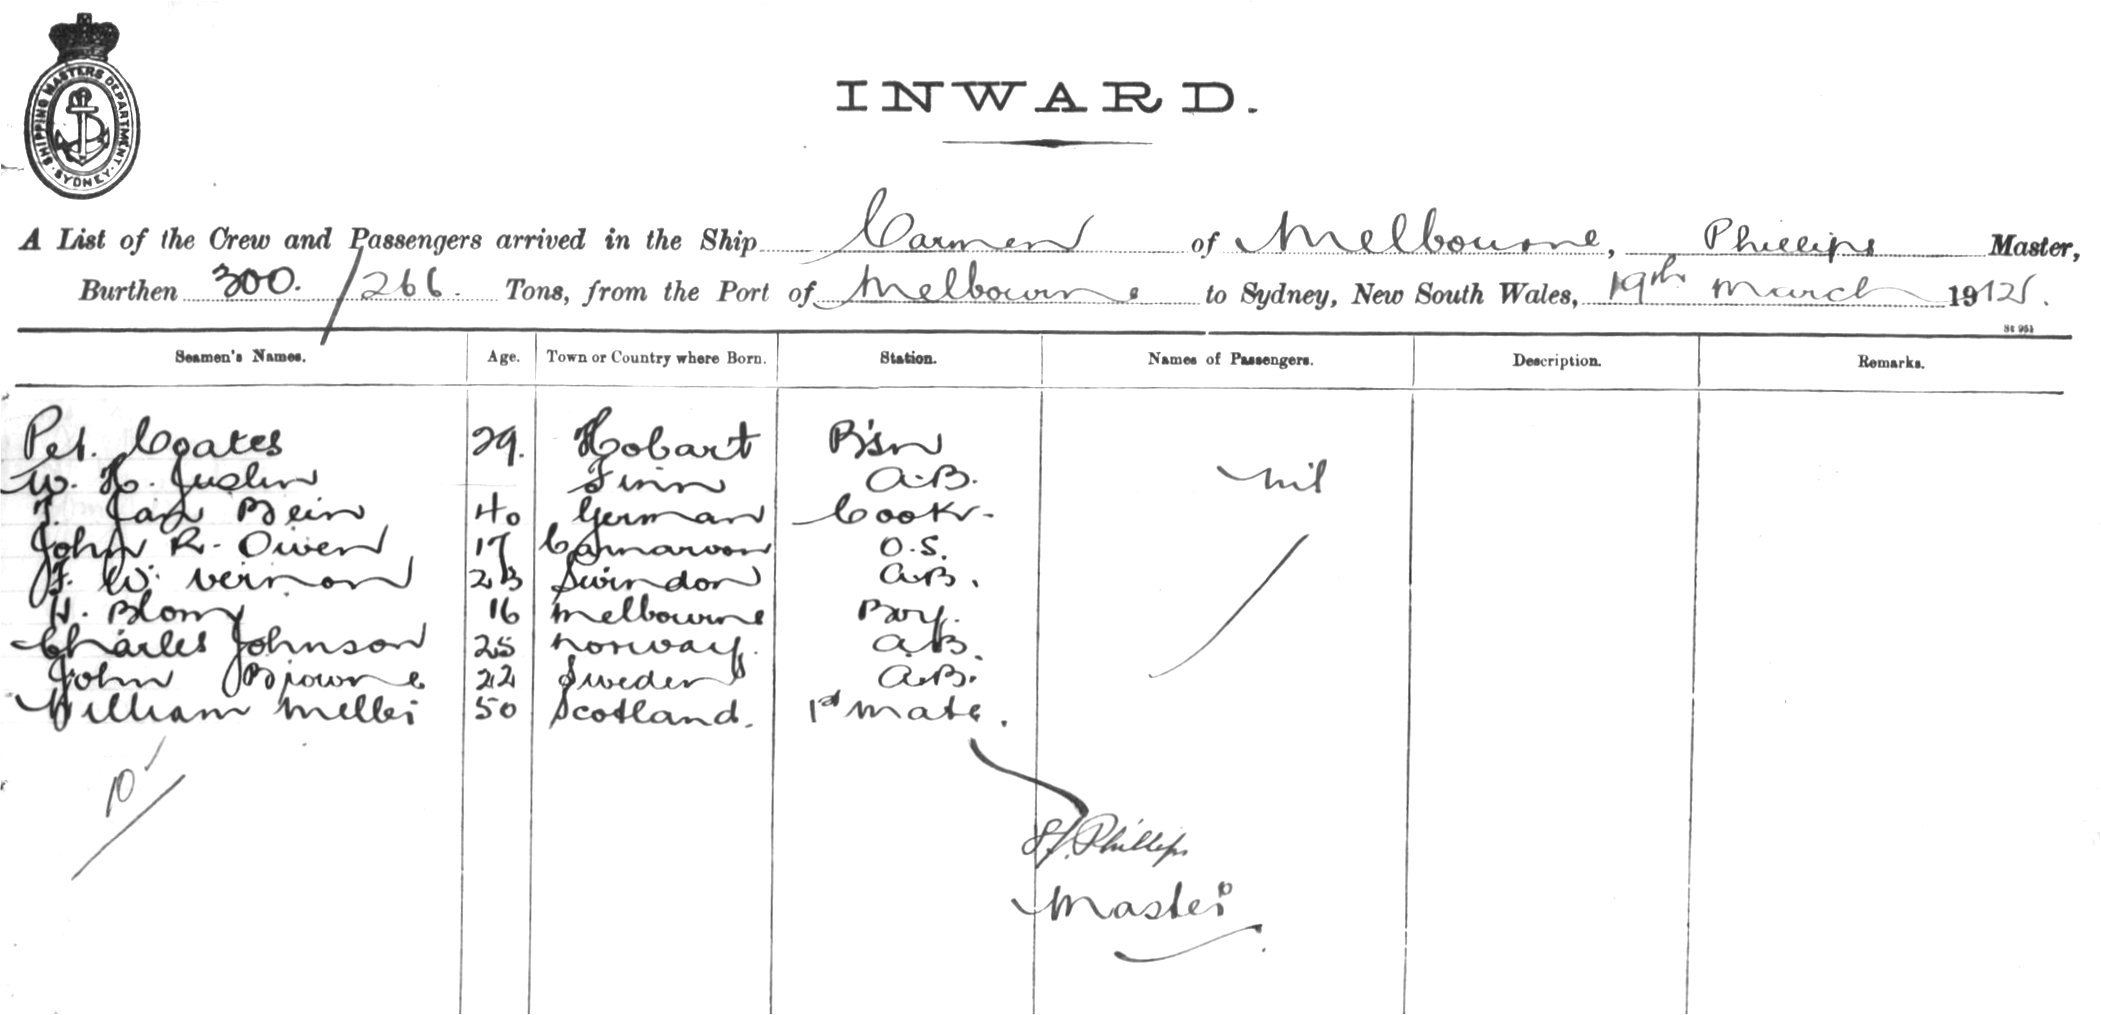 SHIPPING MASTERS DEPARTMENT
SYDNEY
INWARD.
A List of the Crew and Passengers arrived in the Ship Carmen of Melbourne, Phillips Master,
Burthen 300. / 266. Tons, from the Port of Melbourne to Sydney, New South Wales, 19th March 19
Seamen's Names. Age. Town or Country where Born. Station. Names of Passengers. Description. Remarks.
Pet. Coates 29. Hobart B'sn
W. H. Juslin Finn A.B. nil
J. Jan Bein 40 German Cook
John R. Owen 17 Carnarvon O.S.
F. W. Vernon 23 Swindon A.B.
H. Blom 16 Melbourne Boy.
Charles Johnson 25 Norway. A.B.
John Browne 22 Sweden A.B.
William Meller 50 Scotland. 1st Mate.
10
Phillips
Master